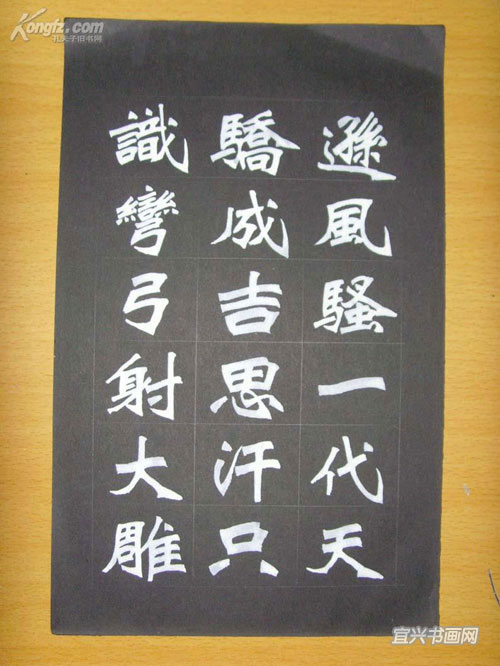 遜風騷一代天
驕成吉思汗只
識彎弓射大雕
Kongfz.com
孔夫子旧书网
宜兴书画网